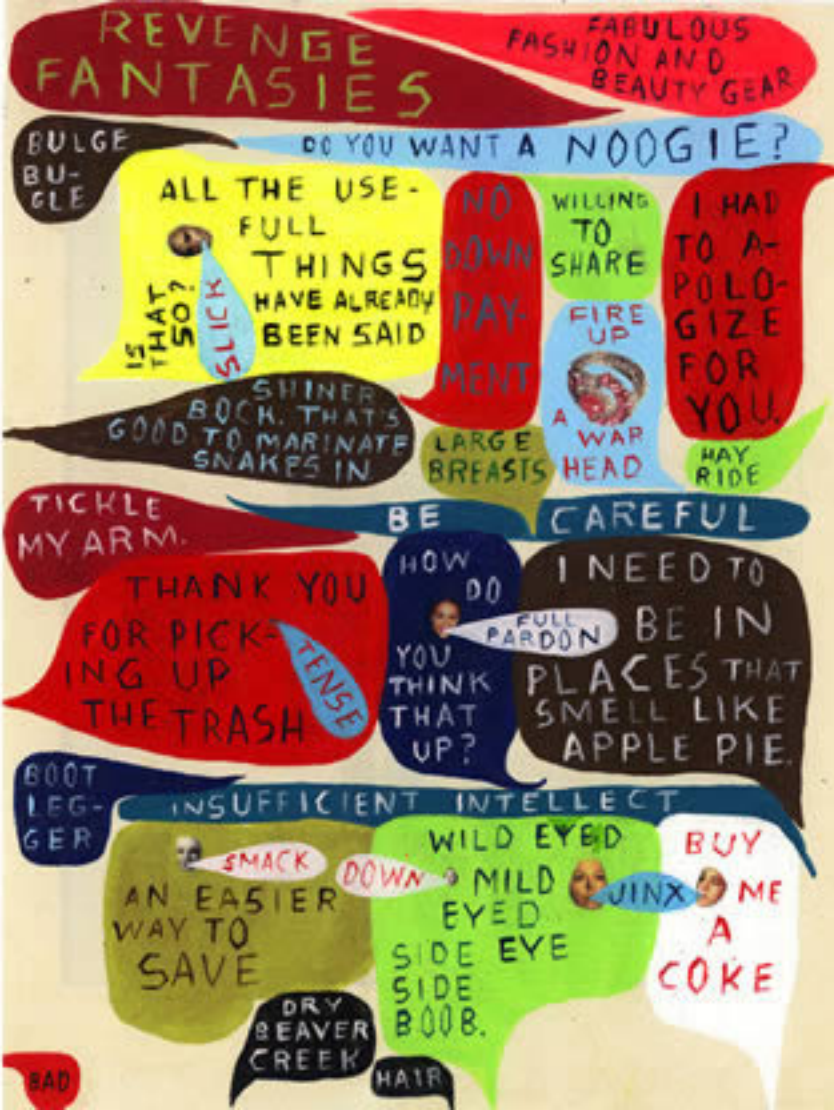 REVENGE
FANTASIES
FABULOUS
FASHION AND
BEAUTY GEAR
BULGE
BU-
GLE
DO YOU WANT A NOOGIE?
ALL THE USE-
FULL
THINGS
HAVE ALREADY
BEEN SAID
IS
THAT
SO?
SLICK
NO
DOWN
PAY-
MENT
WILLING
TO
SHARE
I HAD
TO A-
POLO-
GIZE
FOR
YOU.
FIRE
UP
A
WAR
HEAD
SHINER
BOCK. THAT'S
GOOD TO MARINATE
SNAKES IN
LARGE
BREASTS
HAY
RIDE
TICKLE
MY ARM.
BE CAREFUL
THANK YOU
FOR PICK-
ING UP
THE TRASH
TENSE
HOW
DO
YOU
THINK
THAT
UP?
FULL
PARDON
I NEED TO
BE IN
PLACES THAT
SMELL LIKE
APPLE PIE.
BOOT
LEG-
GER
INSUFFICIENT INTELLECT
SMACK
DOWN
AN EASIER
WAY TO
SAVE
WILD EYED
MILD
EYED
SIDE EYE
SIDE
BOOB.
JINX
BUY
ME
A
COKE
DRY
BEAVER
CREEK
HAIR
BAD